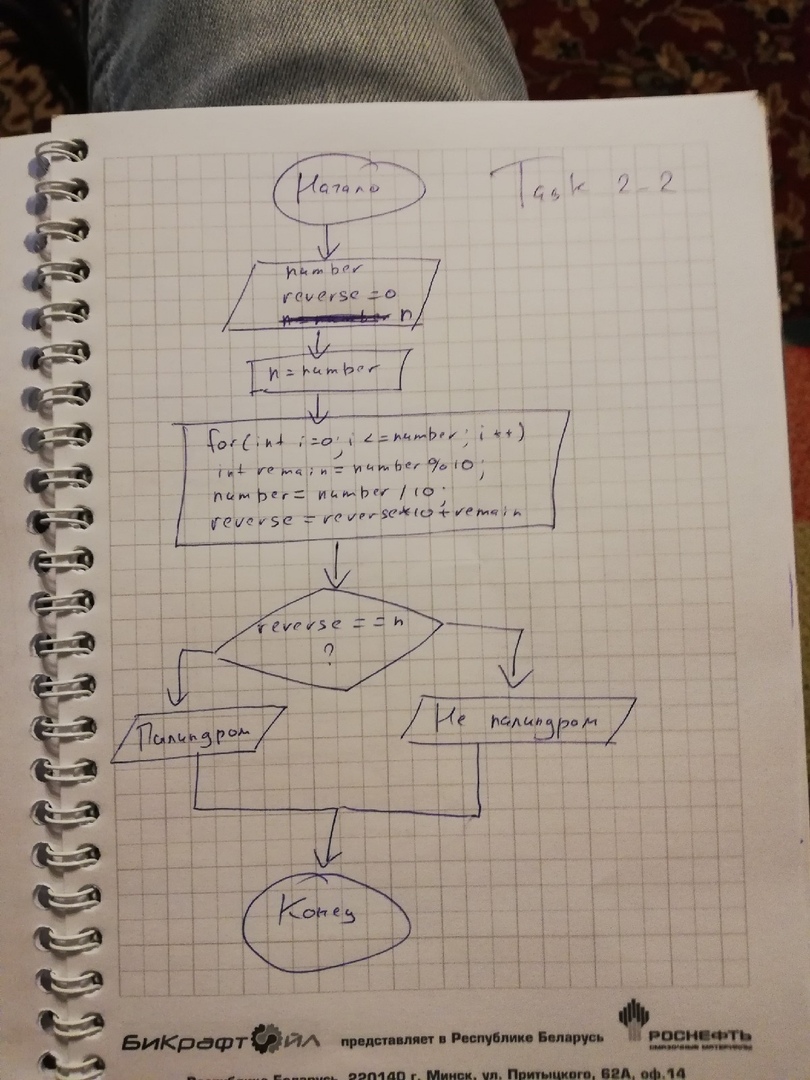 Начало
Task 2-2
number
reverse = 0
n
n = number
for(int i=0; i <= number; i++)
int remain = number % 10;
number = number / 10;
reverse = reverse*10 + remain
reverse == n
?
Палиндром
Не палиндром
Конец
БиКрафт Ойл представляет в Республике Беларусь РОСНЕФТЬ
СМАЗОЧНЫЕ МАТЕРИАЛЫ
Республика Беларусь, 220140 г. Минск, ул. Притыцкого, 62А, оф.14